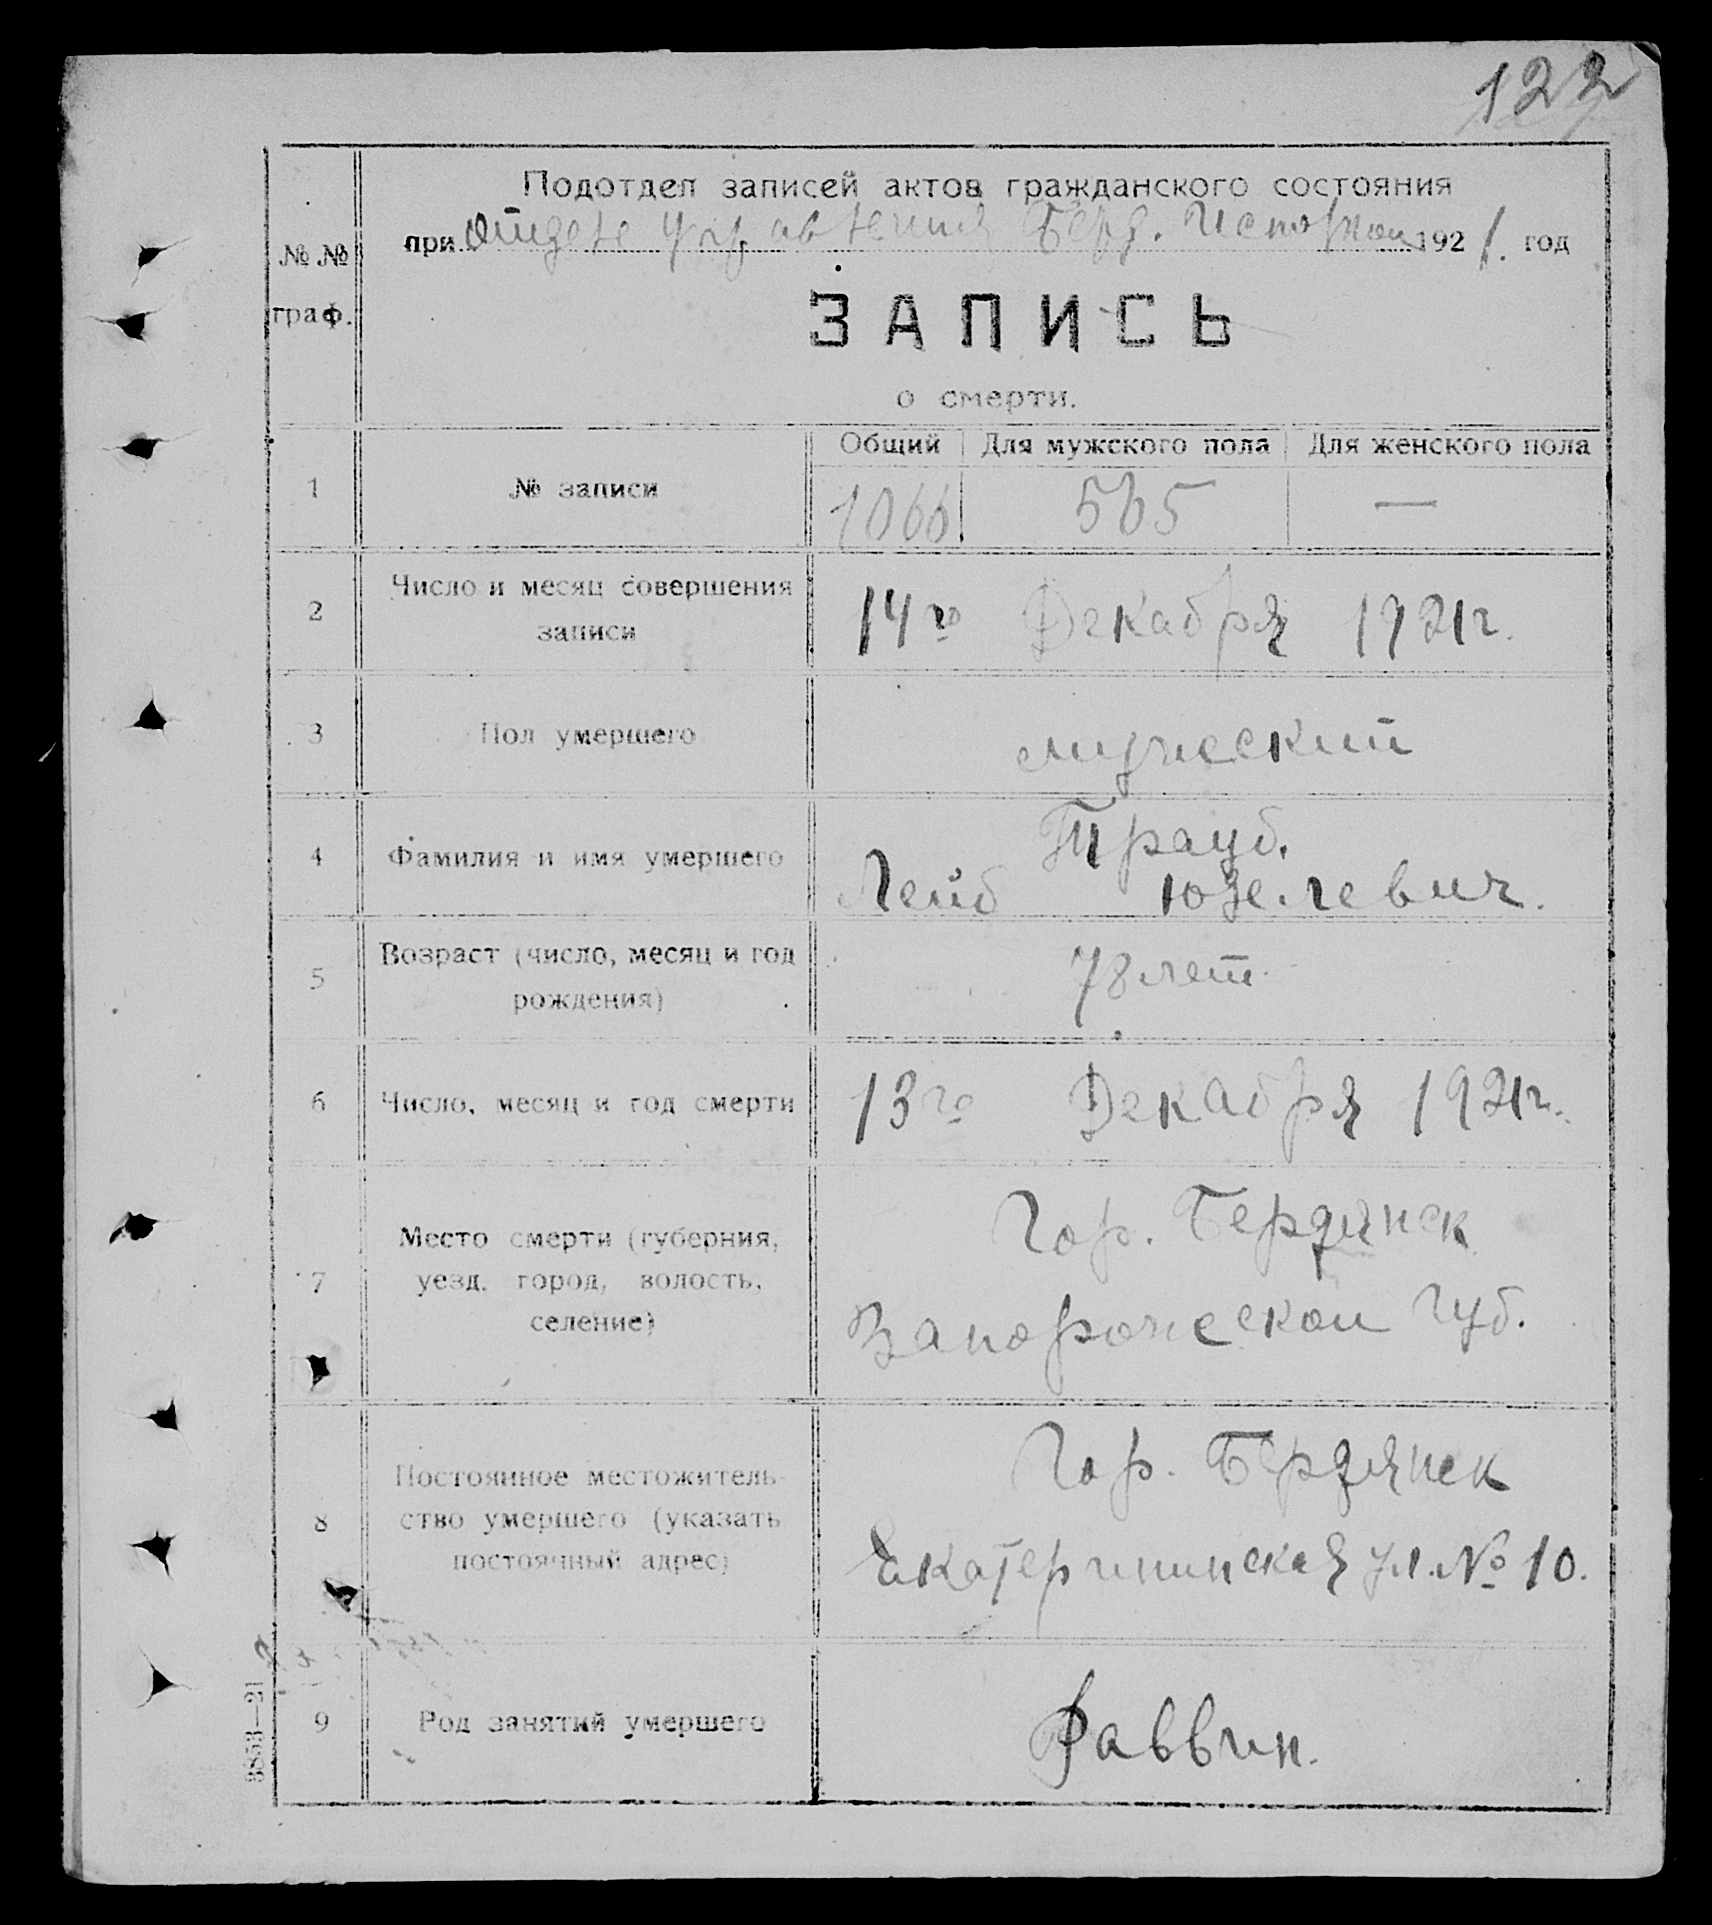 122
Подотдел записей актов гражданского состояния
при отделе управления Берд. Исполком 1921. год
№ №
граф.
ЗАПИСЬ
о смерти.
Общий Для мужского пола Для женского пола
1 № записи 1066 565 —
2 Число и месяц совершения
записи
14го Декабря 1921г.
3 Пол умершего мужеский
4 Фамилия и имя умершего
Трауб.
Лейб Юзелевич.
5 Возраст (число, месяц и год
рождения)
78 лет.
6 Число, месяц и год смерти 13го Декабря 1921г.
7 Место смерти (губерния,
уезд, город, волость,
селение)
Гор. Бердянск
Запорожеской Губ.
8 Постоянное местожитель-
ство умершего (указать
постоянный адрес)
Гор. Бердянск
Екатерининская ул. № 10.
9 Род занятий умершего Раввин.
3853—21